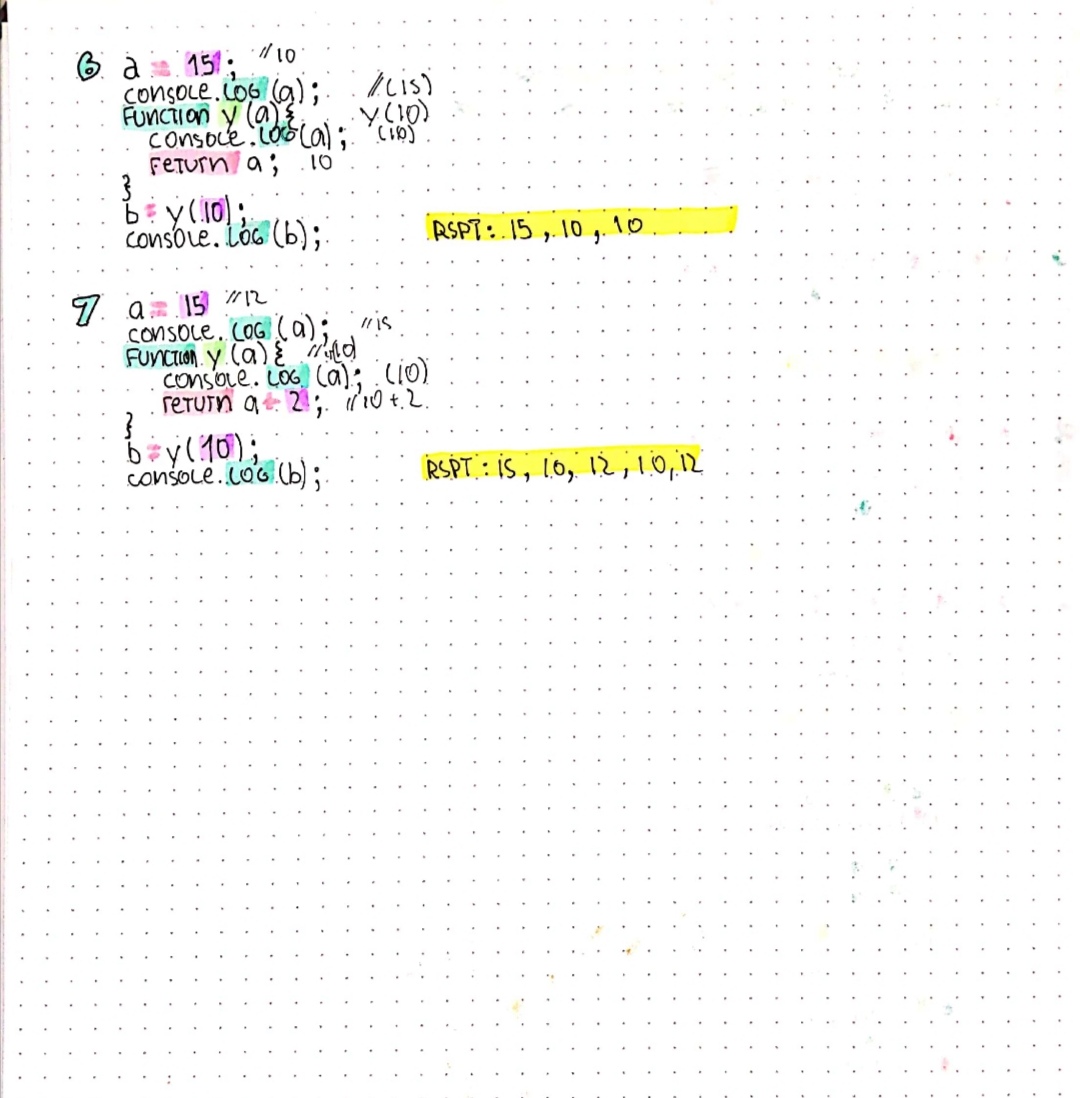 6 a = 15; //10
console.LOG (a); //(15)
FUNCTION y (a) { y(10)
console.LOG (a); (10)
return a; 10
}
b = y(10);
console.LOG (b); RSPT: 15, 10, 10
7 a = 15 //12
console.LOG (a); //15
FUNCTION y (a) {
console.LOG (a); (10)
return a + 2; //10 + 2
}
b = y(10);
console.LOG (b); RSPT: 15, 10, 12, 10, 12